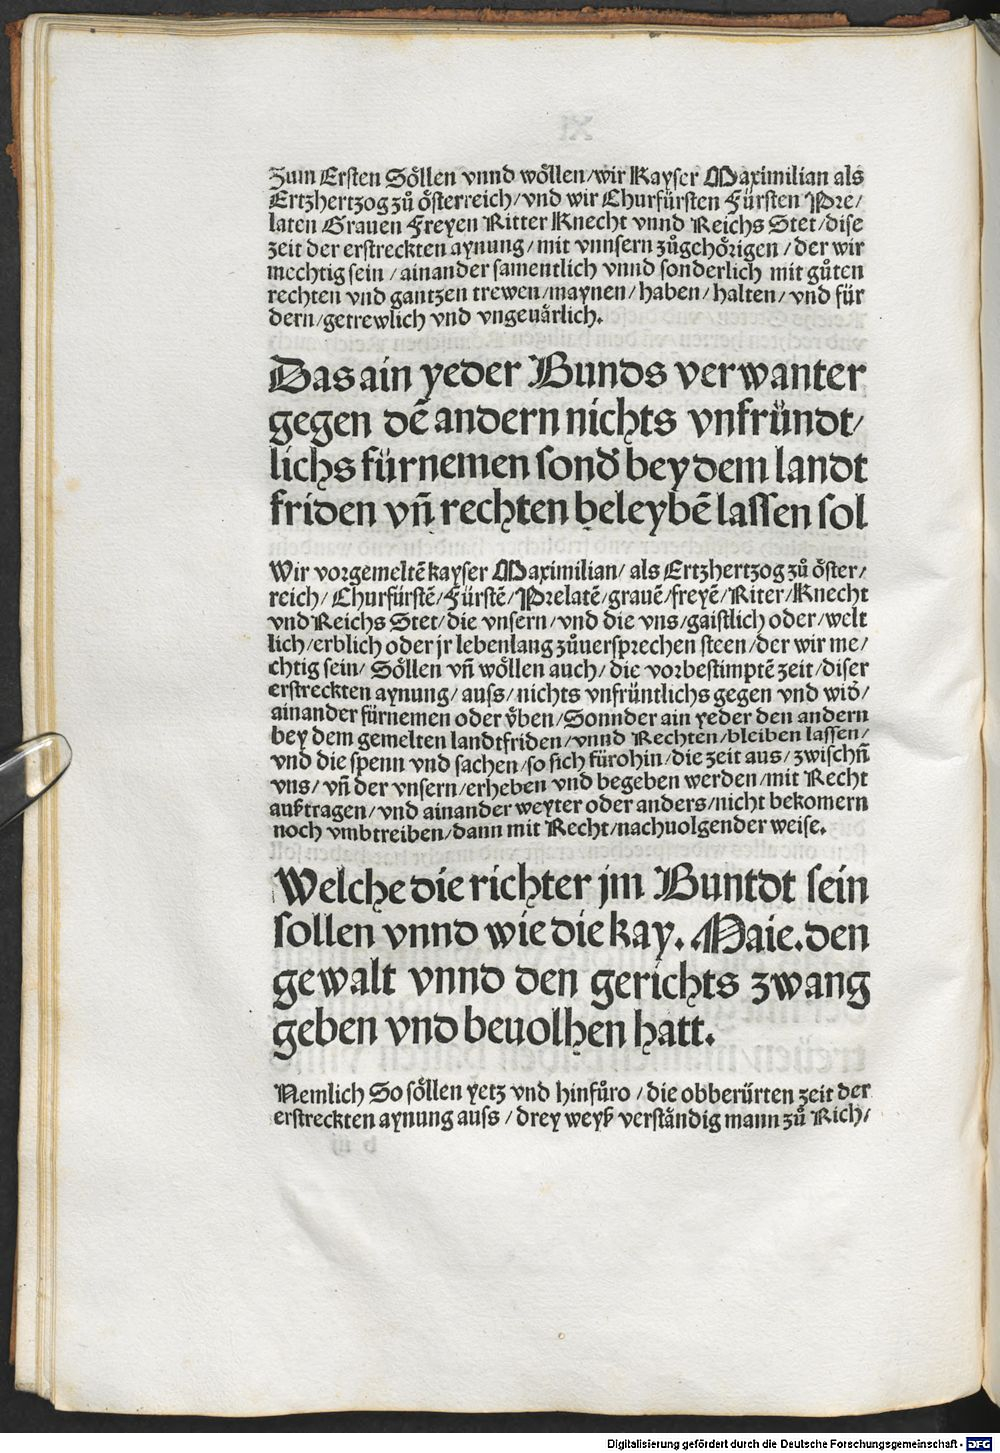 Zum Ersten Soͤllen vnnd woͤllen/wir Kayser Maximilian als
Ertzhertzog zuͦ oͤsterreich/vnd wir Churfürsten Fürsten Pre/
laten Grauen Freyen Ritter Knecht vnnd Reichs Stet/dise
zeit der erstreckten aynung/mit vnnsern zuͦgehoͤrigen/der wir
mechtig sein/ainander samentlich vnnd sonderlich mit guͦten
rechten vnd gantzen trewen/maynen/haben/halten/vnd für
dern/getrewlich vnd vngeuaͤrlich.
Das ain yeder Bunds verwanter
gegen dē andern nichts vnfründt/
lichs fürnemen sonđ bey dem landt
friden vn̄ rechten beleybē lassen sol
Wir vorgemeltē kayser Maximilian/als Ertzhertzog zuͦ oͤster/
reich/Churfürstē/Fürstē/Prelatē/grauē/freyē/Riter/Knecht
vnd Reichs Stet/die vnsern/vnd die vns/gaistlich oder/welt
lich/erblich oder jr lebenlang zuͦuersprechen steen/der wir me/
chtig sein/Soͤllen vn̄ woͤllen auch/die vorbestimptē zeit/diser
erstreckten aynung/auss/nichts vnfrüntlichs gegen vnd wiđ/
ainander fürnemen oder vͤben/Sonnder ain yeder den andern
bey dem gemelten landtfriden/vnnd Rechten/bleiben lassen/
vnd die spenn vnd sachen/so sich fürohin/die zeit aus/zwischn̄
vns/vn̄ der vnsern/erheben vnd begeben werden/mit Recht
außtragen/vnd ainander weyter oder anders/nicht bekomern
noch vmbtreiben/dann mit Recht/nachuolgender weise.
Welche die richter jm Buntdt sein
sollen vnnd wie die kay. Maie. den
gewalt vnnd den gerichts zwang
geben vnd beuolhen hatt.
Nemlich So soͤllen yetz vnd hinfuͤro/die obberürten zeit der
erstreckten aynung auss/drey weyß verstaͤndig mann zuͦ Rich/
Digitalisierung gefördert durch die Deutsche Forschungsgemeinschaft - DFG